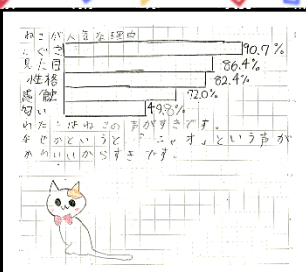 ねこが人気な理由
しぐさ 90.7%
見た目 86.4%
性格 82.4%
感触 72.0%
匂い 49.8%
わたしはねこの声がすきです。
なぜかというと「ニャオ」という声が
かわいいからすきです。